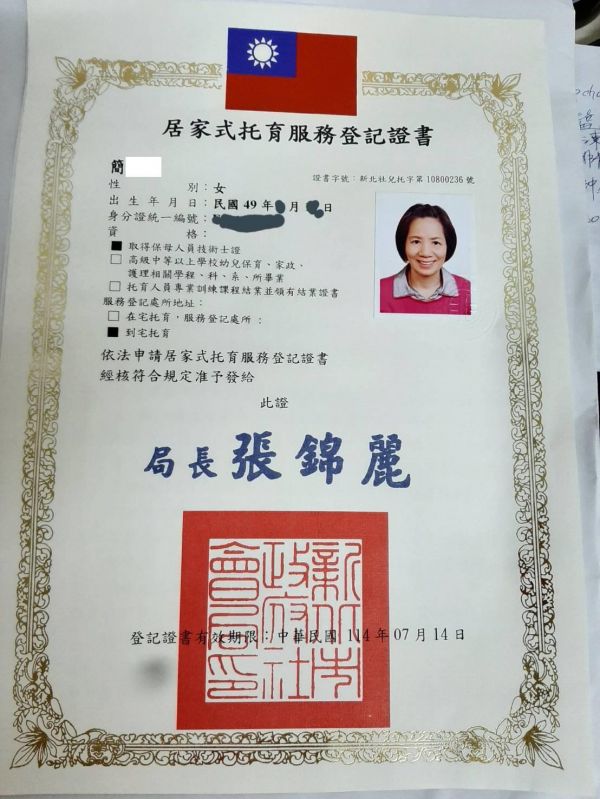 居家式托育服務登記證書
簡
證書字號：新北社兒托字第10800236號
性別：女
出生年月日：民國49年 月 日
身分證統一編號：
資格：
■ 取得保母人員技術士證
□ 高級中等以上學校幼兒保育、家政、
護理相關學程、科、系、所畢業
□ 托育人員專業訓練課程結業並領有結業證書
服務登記處所地址：
□ 在宅托育，服務登記處所：
■ 到宅托育
依法申請居家式托育服務登記證書
經核符合規定准予發給
此證
局長 張錦麗
新北市政府社會局印
登記證書有效期限：中華民國 114 年 07 月 14 日